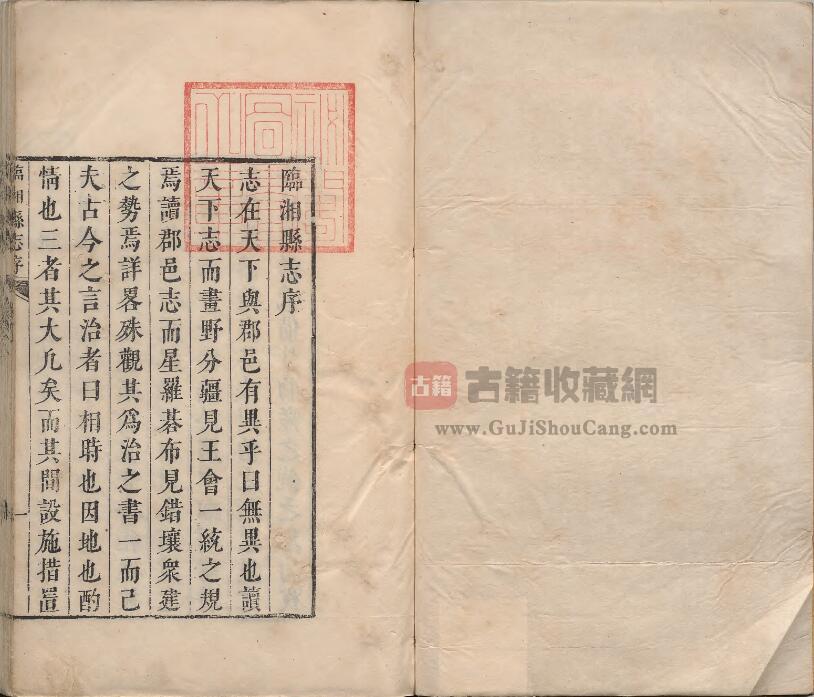 臨湘縣志序
志在天下與郡邑有異乎曰無異也讀
天下志而畫野分疆見王會一統之規
焉讀郡邑志而星羅碁布見錯壤衆建
之勢焉詳畧殊觀其爲治之書一而已
夫古今之言治者曰相時也因地也酌
情也三者其大凡矣而其間設施措置
臨湘縣志序
一
古籍 古籍收藏網
www.GuJiShouCang.com